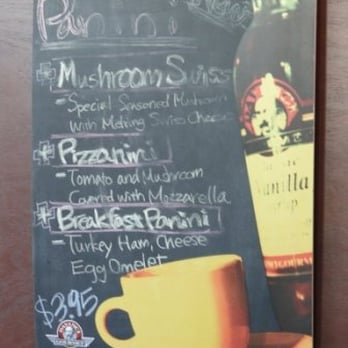 Panini New
Mushroom Swiss
- Special Seasoned Mushroom
with Melting Swiss Cheese
Pizzanini
- Tomato and Mushroom
Covered with Mozzarella
Breakfast Panini
- Turkey Ham, Cheese
Egg Omelet
$3.95
Vanilla
GOURMET